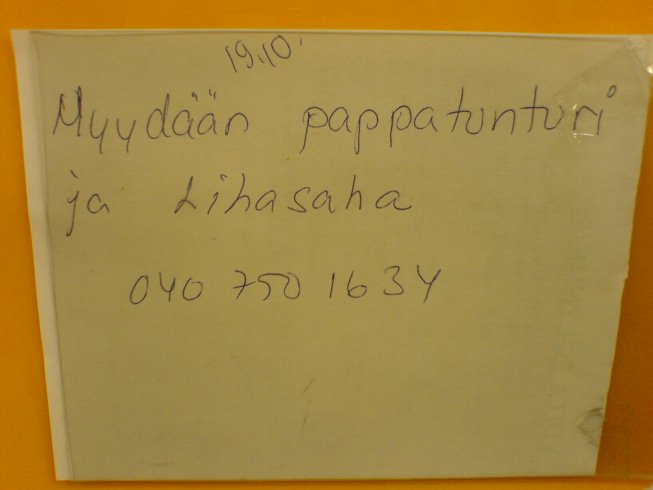 19.10.
Myydään pappatunturi
ja Lihasaha
040 750 1634